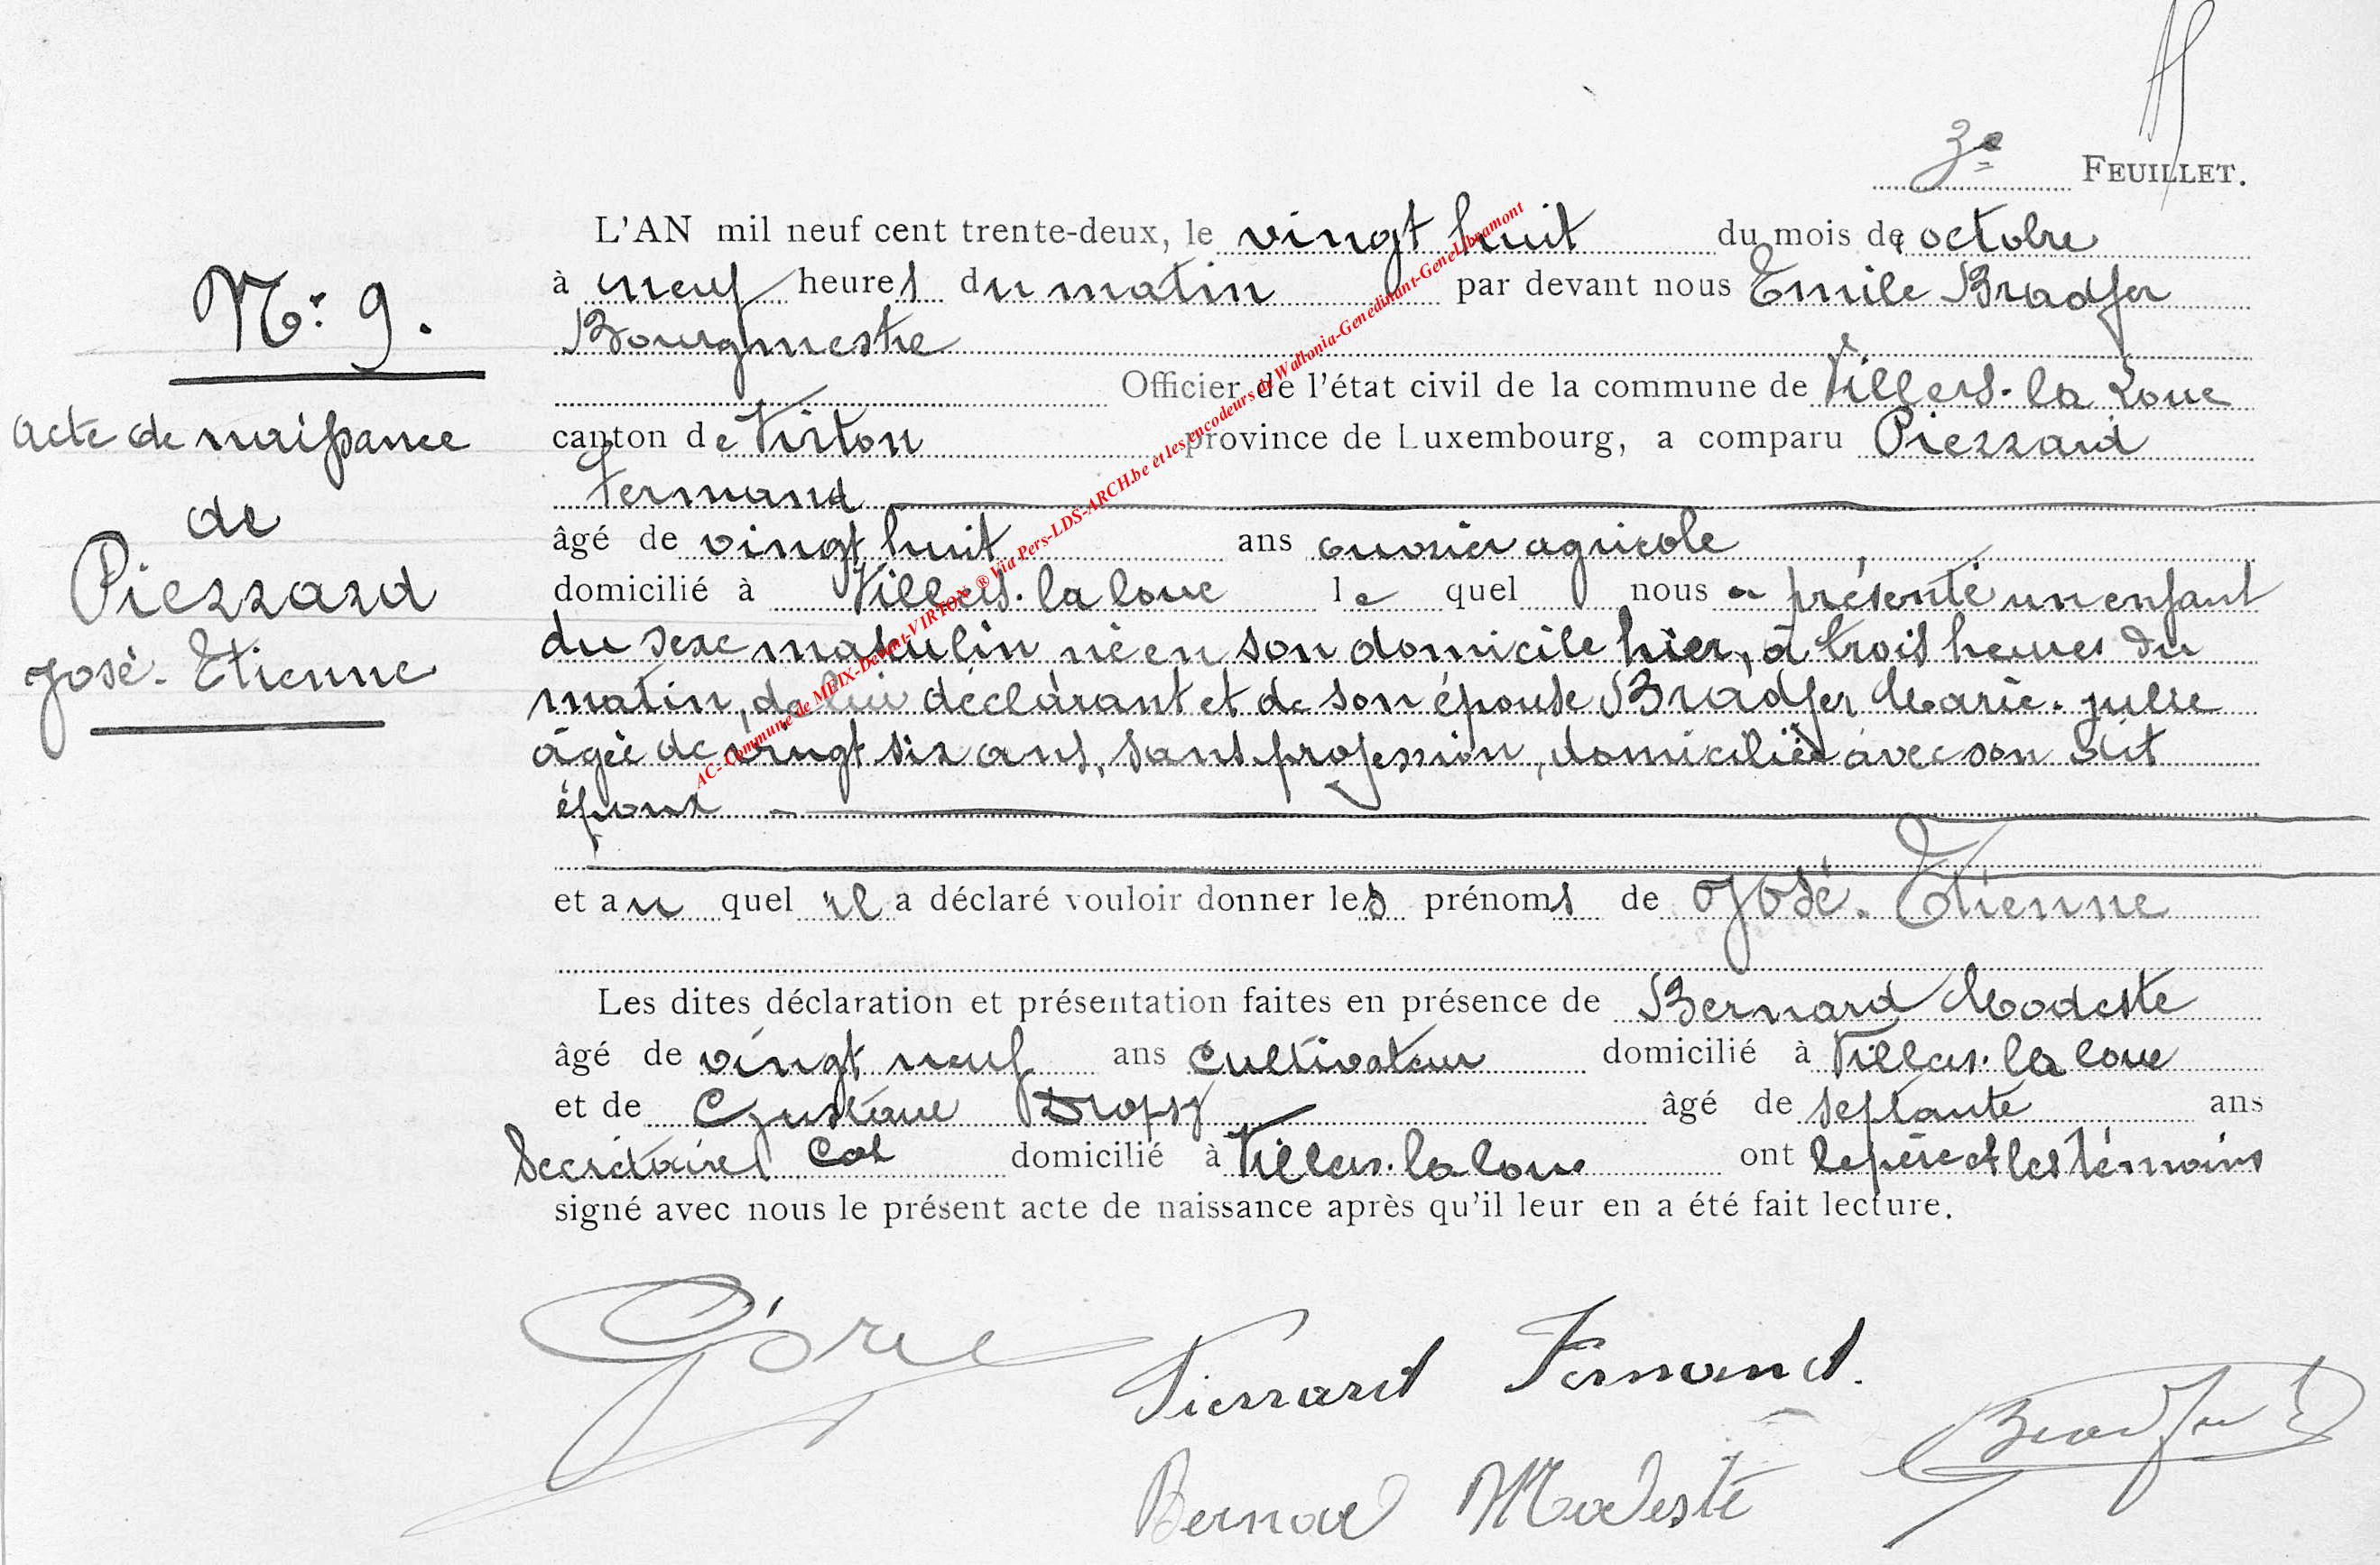 3e FEUILLET.
L'AN mil neuf cent trente-deux, le vingt huit du mois de octobre
N°: 9.
à neuf heures du matin par devant nous Emile Bradfer
Bourgmestre
Officier de l'état civil de la commune de Villers-la Loue
Acte de naissance
canton de Virton province de Luxembourg, a comparu Pierrard
Fernand
de
âgé de vingt huit ans ouvrier agricole
Pierrard
domicilié à Villers-la loue le quel nous a présenté un enfant
José-Etienne
du sexe masculin né en son domicile hier, à trois heures du
matin, de lui déclarant et de son épouse Bradfer Marie-julie
âgée de vingt six ans, sans profession, domiciliée avec son dit
époux
et au quel il a déclaré vouloir donner les prénoms de José-Etienne
Les dites déclaration et présentation faites en présence de Bernard Modeste
âgé de vingt neuf ans cultivateur domicilié à Villers-la loue
et de Gustave Dropsy âgé de septante ans
Secrétaire Cal domicilié à Villers-la loue ont le père et les témoins
signé avec nous le présent acte de naissance après qu'il leur en a été fait lecture.
Pierrard Fernand.
Bradfer E
Bernard Modeste
AC- Commune de MEIX-Devant-VIRTON ® Via Pers-LDS-ARCH.be et les encodeurs de Wallonia-Genedinant-GeneLibramont